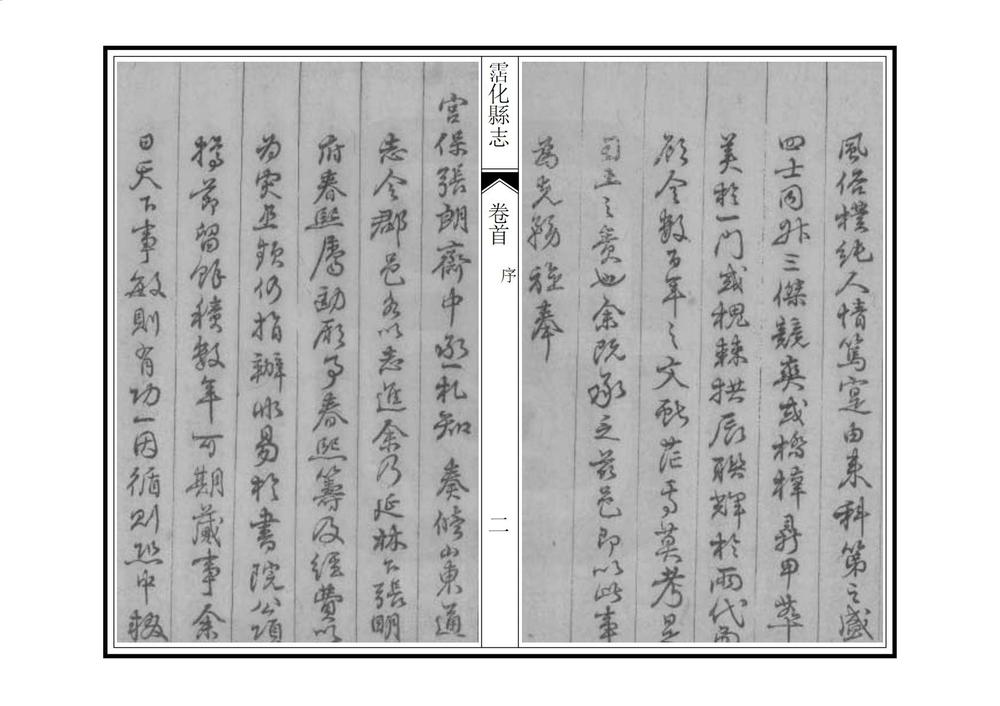 風俗樸純人情篤寔由來科第之盛
四士同升三傑競爽或橋梓鼎甲萃
美於一門或槐棘拱辰聯輝於兩代而
顧令數百年之文獻茫焉莫考是
司土之責也余既承乏茲邑即以此事
為先務旋奉
霑化縣志
卷首
序
二
宮保張朗齋中丞札知奏修山東通
志令郡邑各以志進余乃延林下張明
府春熙屬勷厥事春熙籌及經費以
為突亟鉅仍指辦収易於書院公項
撙節留餘積數年可期蕆事余
曰天下事敏則有功一因循則恐中輟